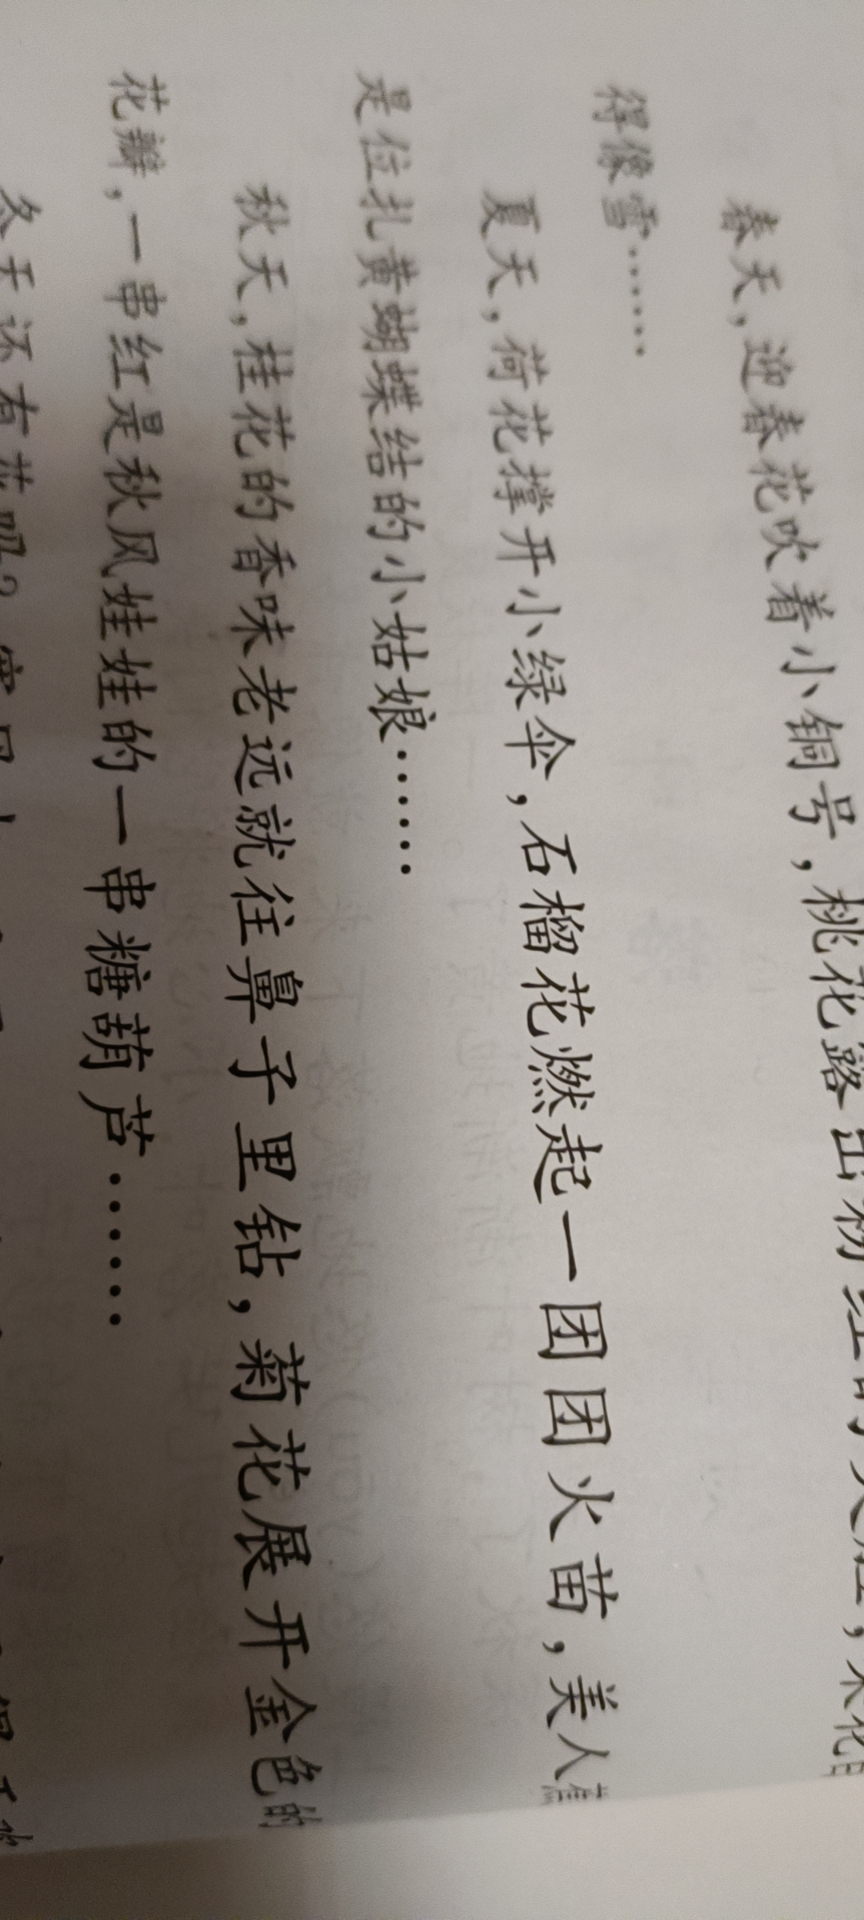 春天,迎春花吹着小铜号,桃花露出粉红的笑脸,
得像雪……
夏天,荷花撑开小绿伞,石榴花燃起一团团火苗,美人蕉
是位扎黄蝴蝶结的小姑娘……
秋天,桂花的香味老远就往鼻子里钻,菊花展开金色的
花瓣,一串红是秋风娃娃的一串糖葫芦……
冬天还有花吗?